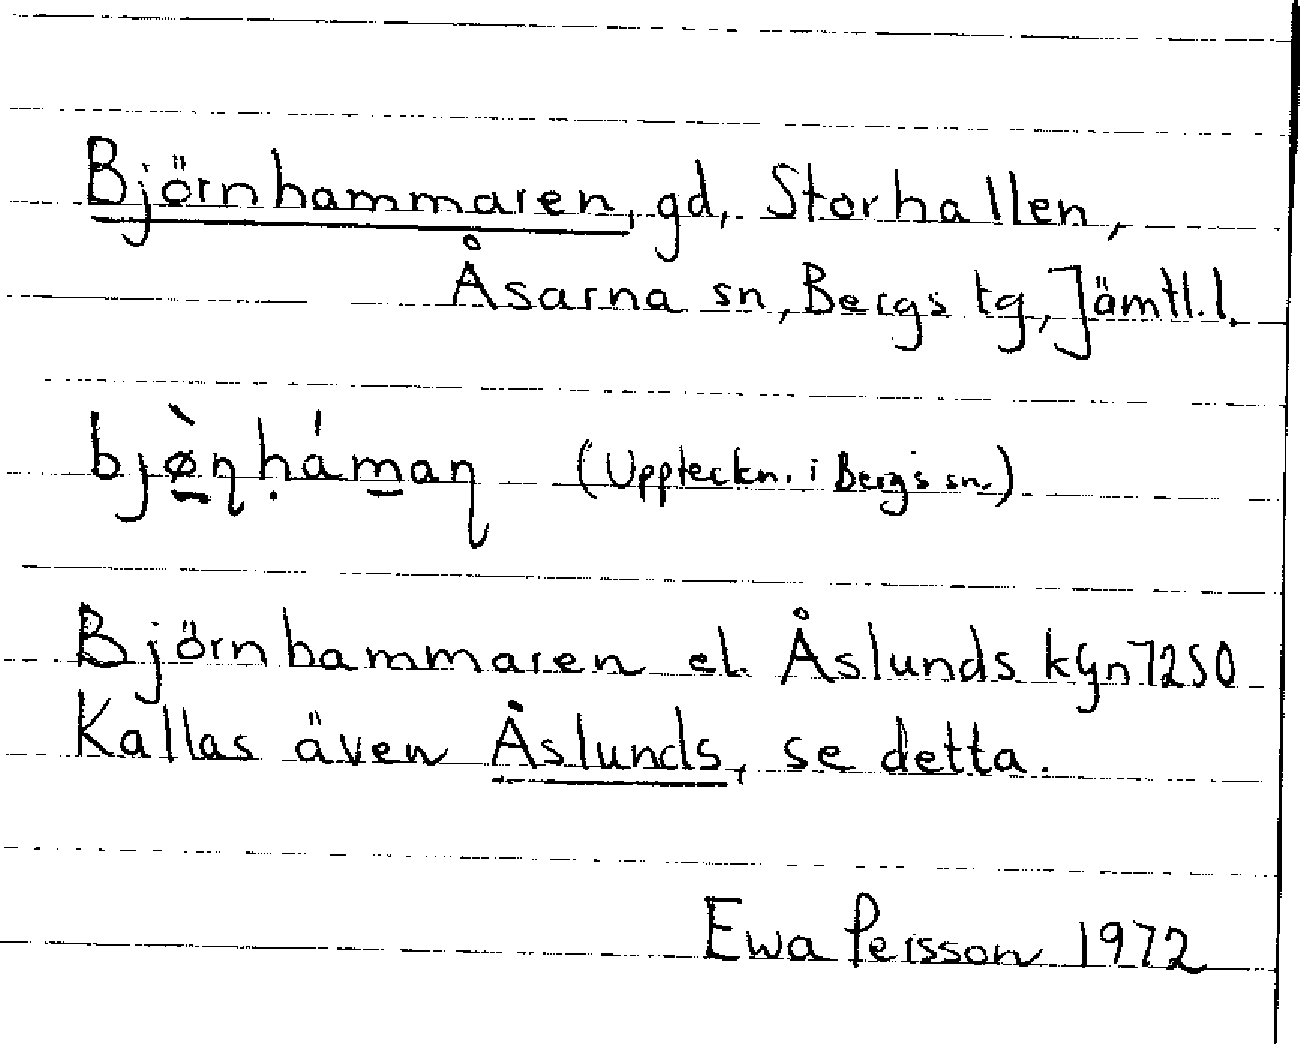 Björnhammaren, gd, Storhallen,
Åsarna sn, Bergs tg, Jämtl.l.
bjø̠̀ɳḥám̠aɳ (Uppteckn. i Bergs sn.)
Björnhammaren el. Åslunds kgn 7250
Kallas även Åslunds, se detta.
Ewa Persson 1972